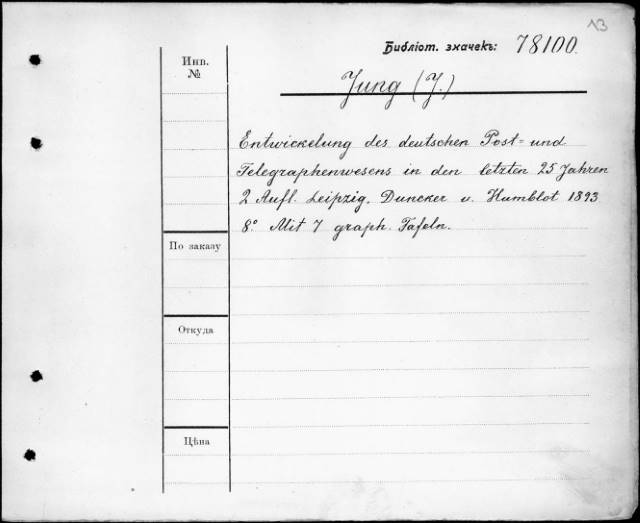 13
Библіот. значекъ: 78100.
Инв.
№
Jung (J.)
Entwickelung des deutschen Post= und
Telegraphenwesens in den letzten 25 Jahren
2 Aufl. Leipzig. Duncker u. Humblot 1893
8° Mit 7 graph. Tafeln.
По заказу
Откуда
Цѣна